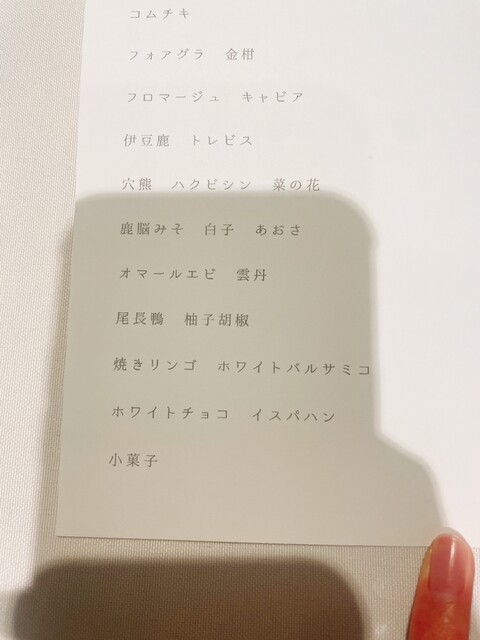 コムチキ
フォアグラ　金柑
フロマージュ　キャビア
伊豆鹿　トレビス
穴熊　ハクビシン　菜の花
鹿脳みそ　白子　あおさ
オマールエビ　雲丹
尾長鴨　柚子胡椒
焼きリンゴ　ホワイトバルサミコ
ホワイトチョコ　イスパハン
小菓子